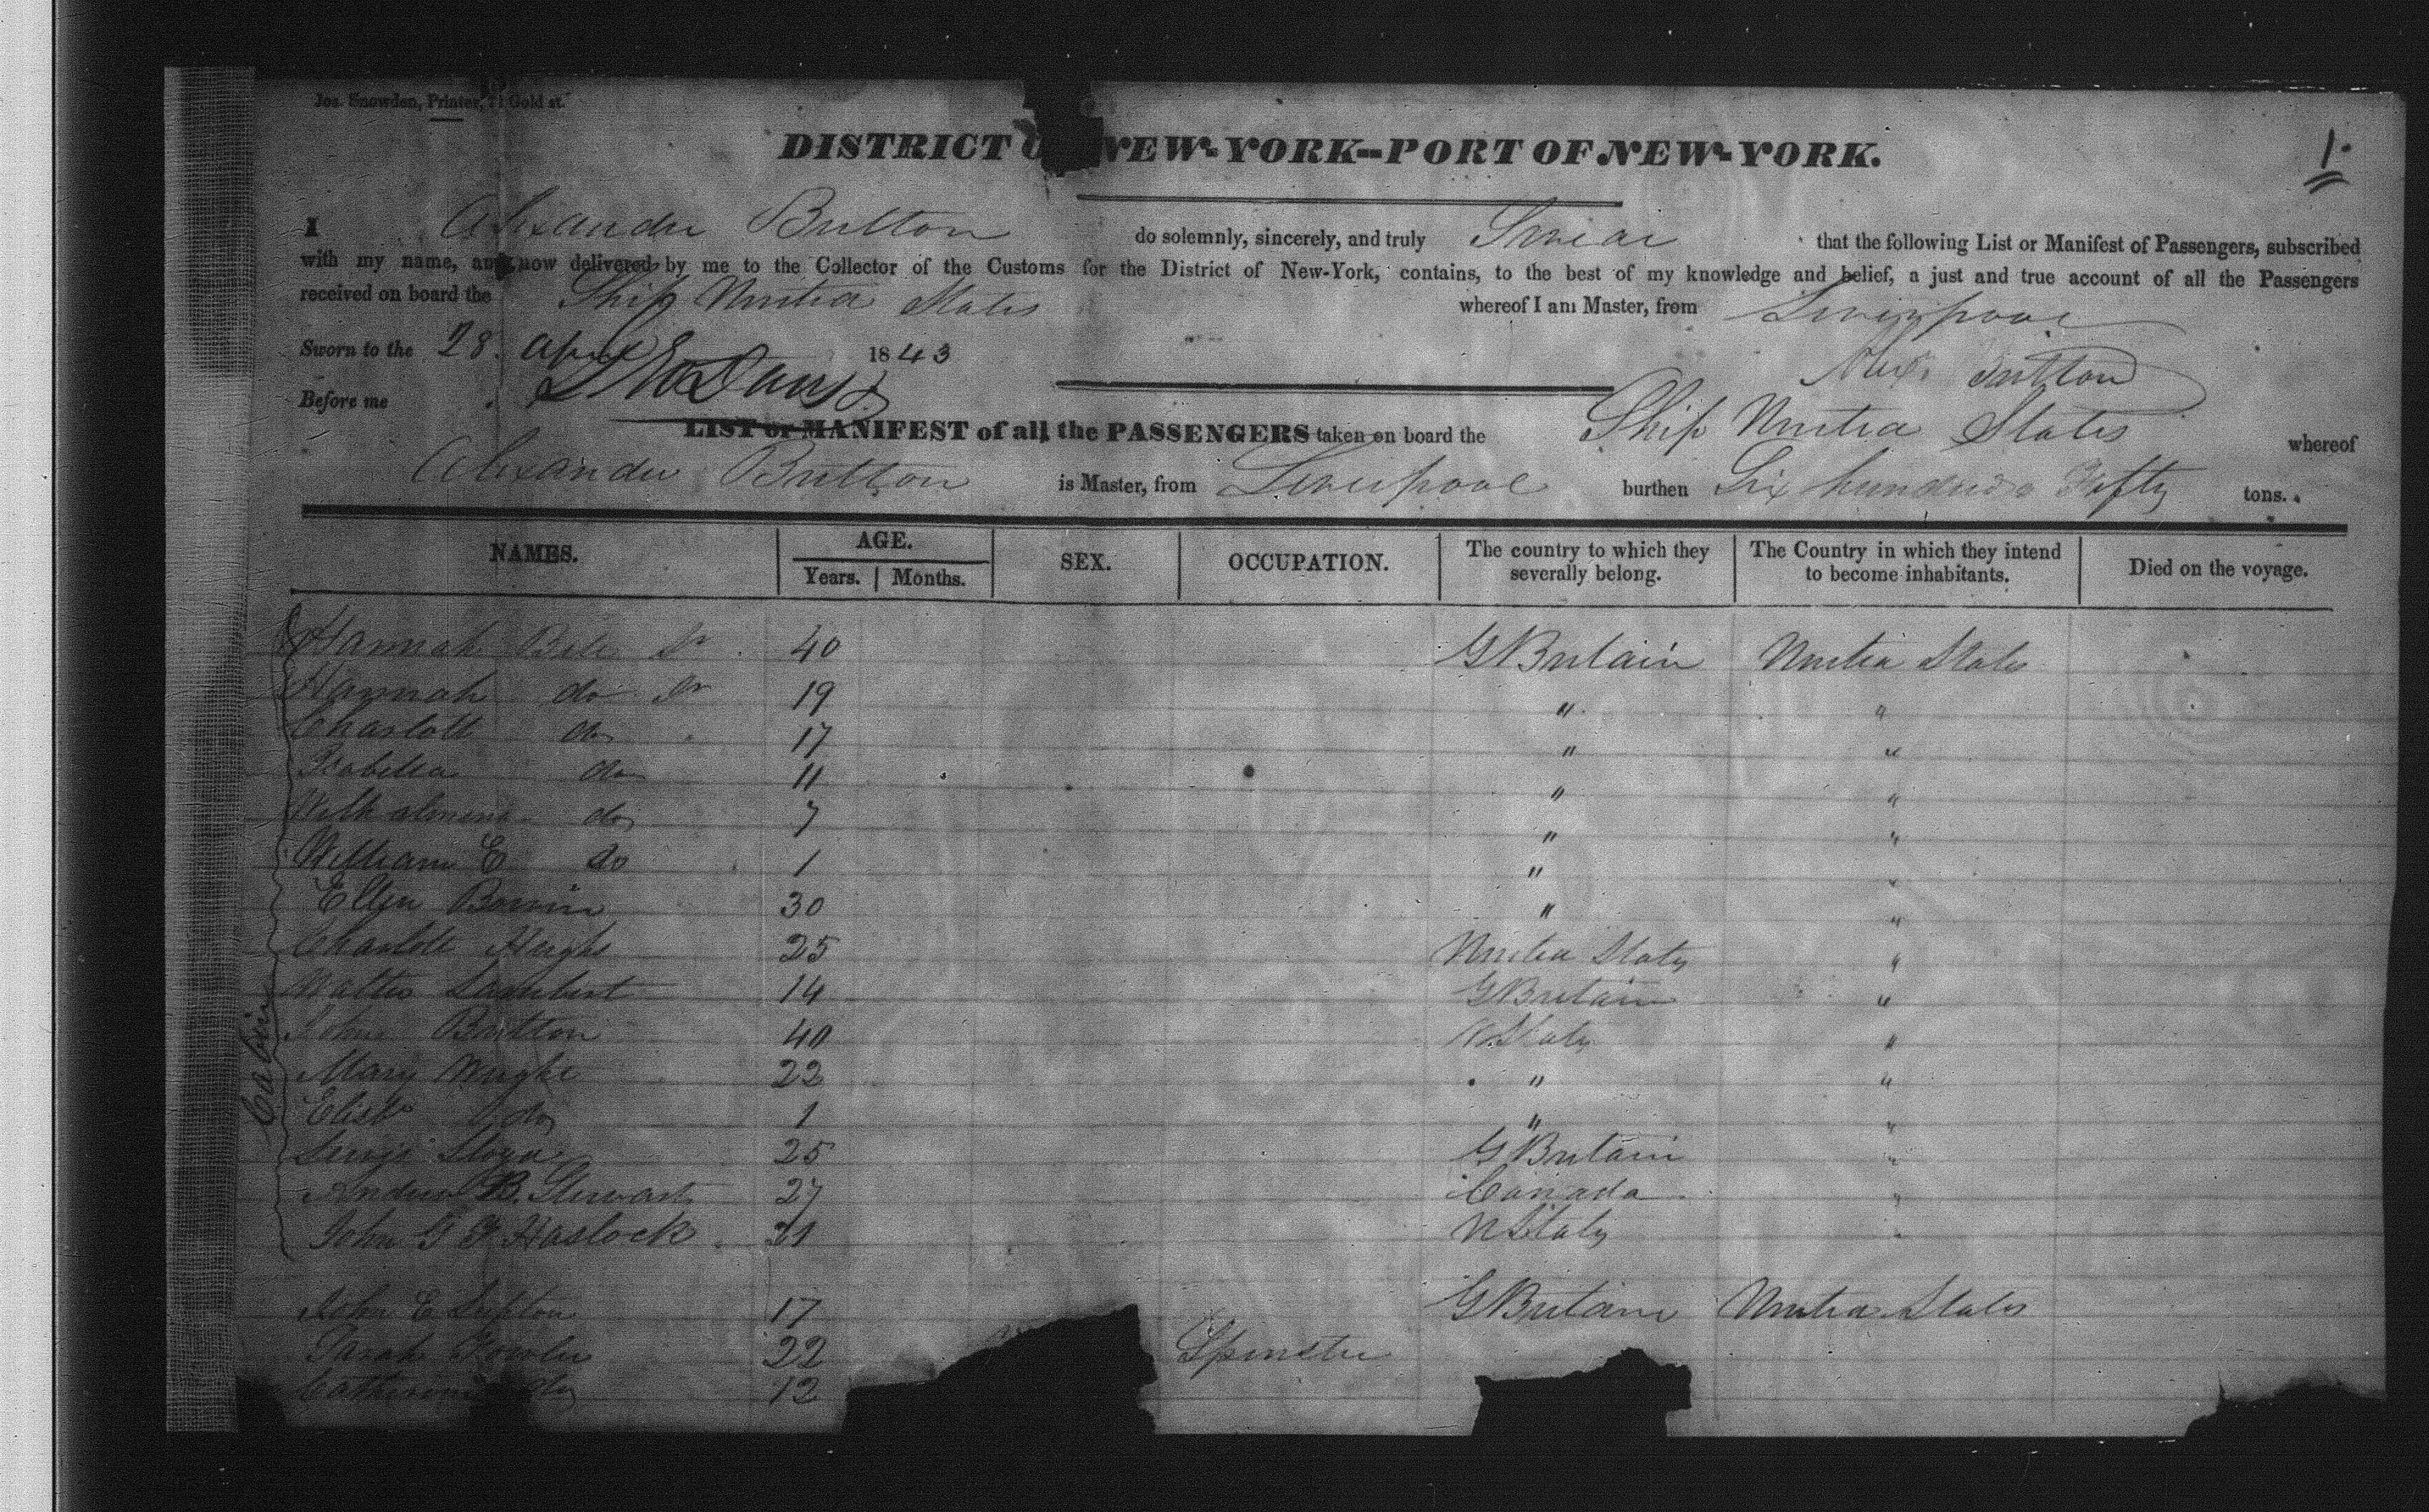 Jos. Snowden, Printer, 71 Gold st.
DISTRICT O NEW-YORK--PORT OF NEW-YORK.
1.
I Alexander Britton do solemnly, sincerely, and truly Swear that the following List or Manifest of Passengers, subscribed
with my name, and now delivered by me to the Collector of the Customs for the District of New-York, contains, to the best of my knowledge and belief, a just and true account of all the Passengers
received on board the Ship United States whereof I am Master, from Liverpool
Sworn to the 28. April 1843
Alex. Britton
Before me
LIST or MANIFEST of all the PASSENGERS taken on board the Ship United States whereof
Alexander Britton is Master, from Liverpool burthen Six hundred & Fifty tons.
NAMES. AGE. SEX. OCCUPATION. The country to which they severally belong. The Country in which they intend to become inhabitants. Died on the voyage.
Years. Months.
Cabin
Hannah Sr 40 G Britain United States
Hannah do Jr 19 " "
Charlott do 17 " "
Isabella do 11 " "
do 7 " "
William E Do 1 " "
Ellen 30 " "
Charlotte 25 United States "
Walter Lambert 14 G Britain "
John Britton 40 U States "
Mary 22 " "
do 1 " "
25 G Britain "
Andrew B. Stewart 27 Canada "
John G F Haslock 21 U States "
John E 17 G Britain United States
Sarah Fowler 22 Spinster
Catherine do 12